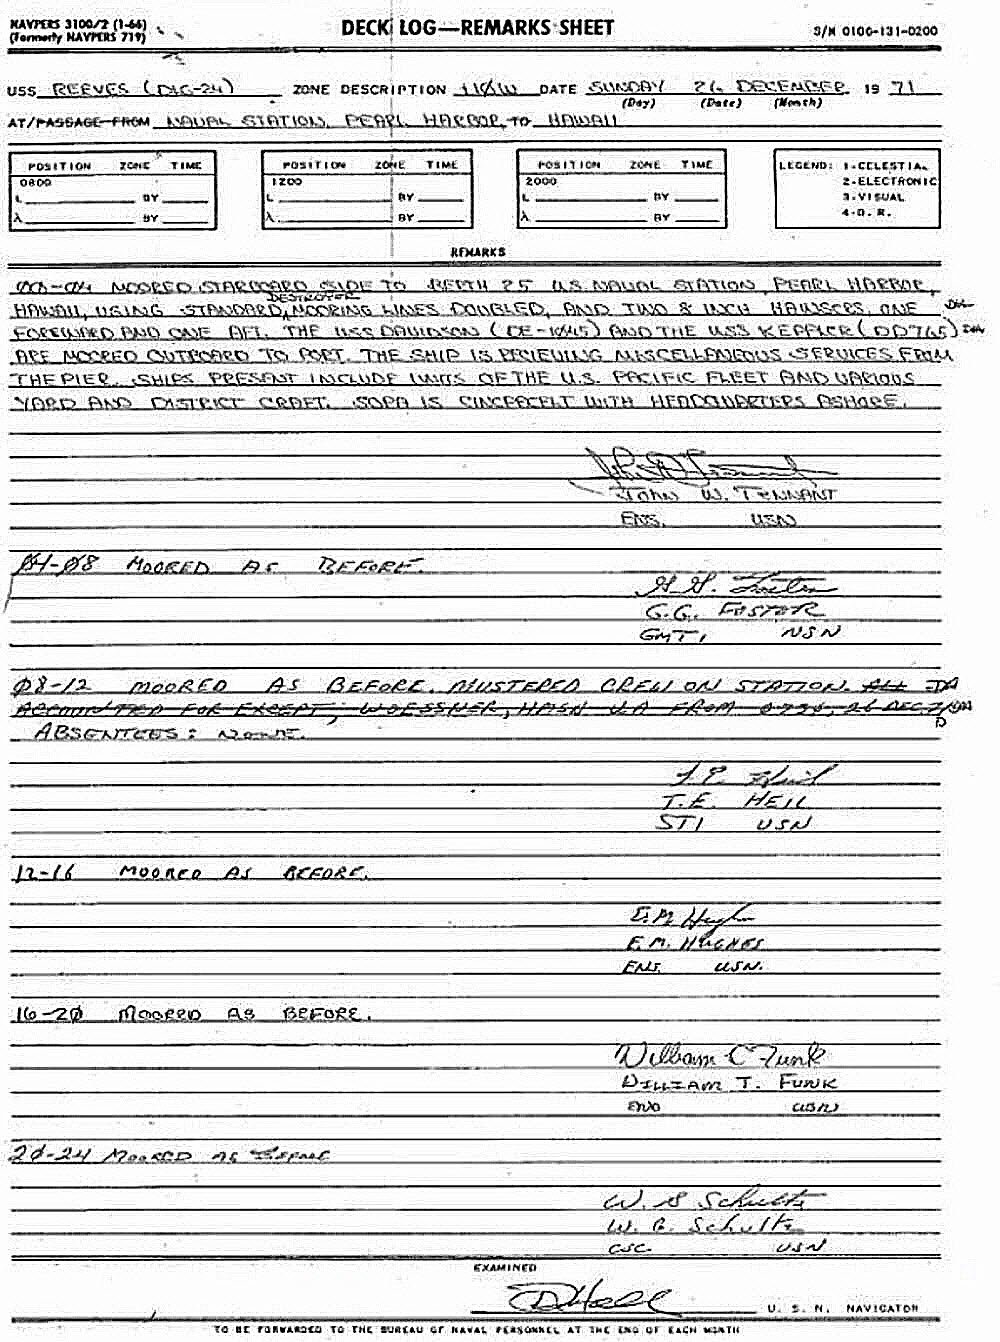 NAVPERS 3100/2 (1-66)
(Formerly NAVPERS 719)
DECK LOG—REMARKS SHEET
S/N 0100-131-0200
USS REEVES (DLG-24) ZONE DESCRIPTION +10W DATE SUNDAY 26 DECEMBER 19 71
(Day) (Date) (Month)
AT/PASSAGE FROM NAVAL STATION, PEARL HARBOR, TO HAWAII
POSITION ZONE TIME
0800
L BY
λ BY
POSITION ZONE TIME
1200
L BY
λ BY
POSITION ZONE TIME
2000
L BY
λ BY
LEGEND: 1-CELESTIAL
2-ELECTRONIC
3-VISUAL
4-D. R.
REMARKS
00-04 MOORED STARBOARD SIDE TO BERTH 25 U.S. NAVAL STATION, PEARL HARBOR,
DESTROYER
HAWAII, USING STANDARD, MOORING LINES DOUBLED, AND TWO 8 INCH HAWSERS, ONE
FOREWARD AND ONE AFT. THE USS DAVIDSON (DE-1045) AND THE USS KEPPLER (DD765)
ARE MOORED OUTBOARD TO PORT. THE SHIP IS RECIEVING MISCELLANEOUS SERVICES FROM
THE PIER. SHIPS PRESENT INCLUDE UNITS OF THE U.S. PACIFIC FLEET AND VARIOUS
YARD AND DISTRICT CRAFT. SOPA IS CINCPACFLT WITH HEADQUARTERS ASHORE.
JOHN W. TENNANT
ENS. USN
04-08 MOORED AS BEFORE.
G. G. Foster
G.G. FOSTER
GMT1 USN
08-12 MOORED AS BEFORE. MUSTERED CREW ON STATION. ALL
ACCOUNTED FOR EXCEPT, WOESSNER, HASN UA FROM 0730, 26 DEC 71
ABSENTEES: NONE.
T. E. Heil
T.E. HEIL
ST1 USN
12-16 MOORED AS BEFORE.
E. M. Hughes
E.M. HUGHES
ENS. USN.
16-20 MOORED AS BEFORE.
William T Funk
WILLIAM T. FUNK
USN
20-24 MOORED AS BEFORE
Schultz
W. Schultz
CSC USN
EXAMINED
U. S. N. NAVIGATOR
TO BE FORWARDED TO THE BUREAU OF NAVAL PERSONNEL AT THE END OF EACH MONTH